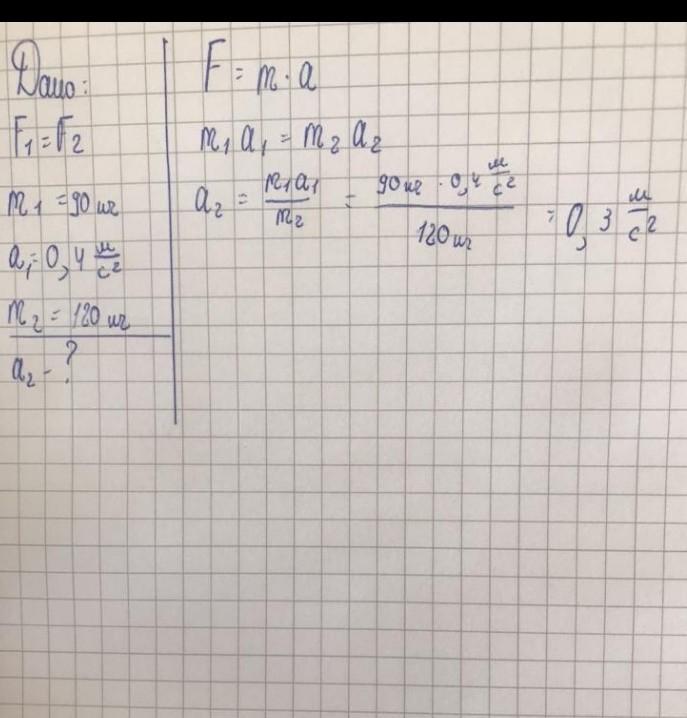 Дано:
F₁=F₂
m₁ =90 кг
a₁=0,4 м/с²
m₂ = 120 кг
a₂ - ?
F = m · a
m₁ a₁ = m₂ a₂
a₂ = m₁a₁/m₂ = 90 кг · 0,4 м/с²/120 кг = 0,3 м/с²